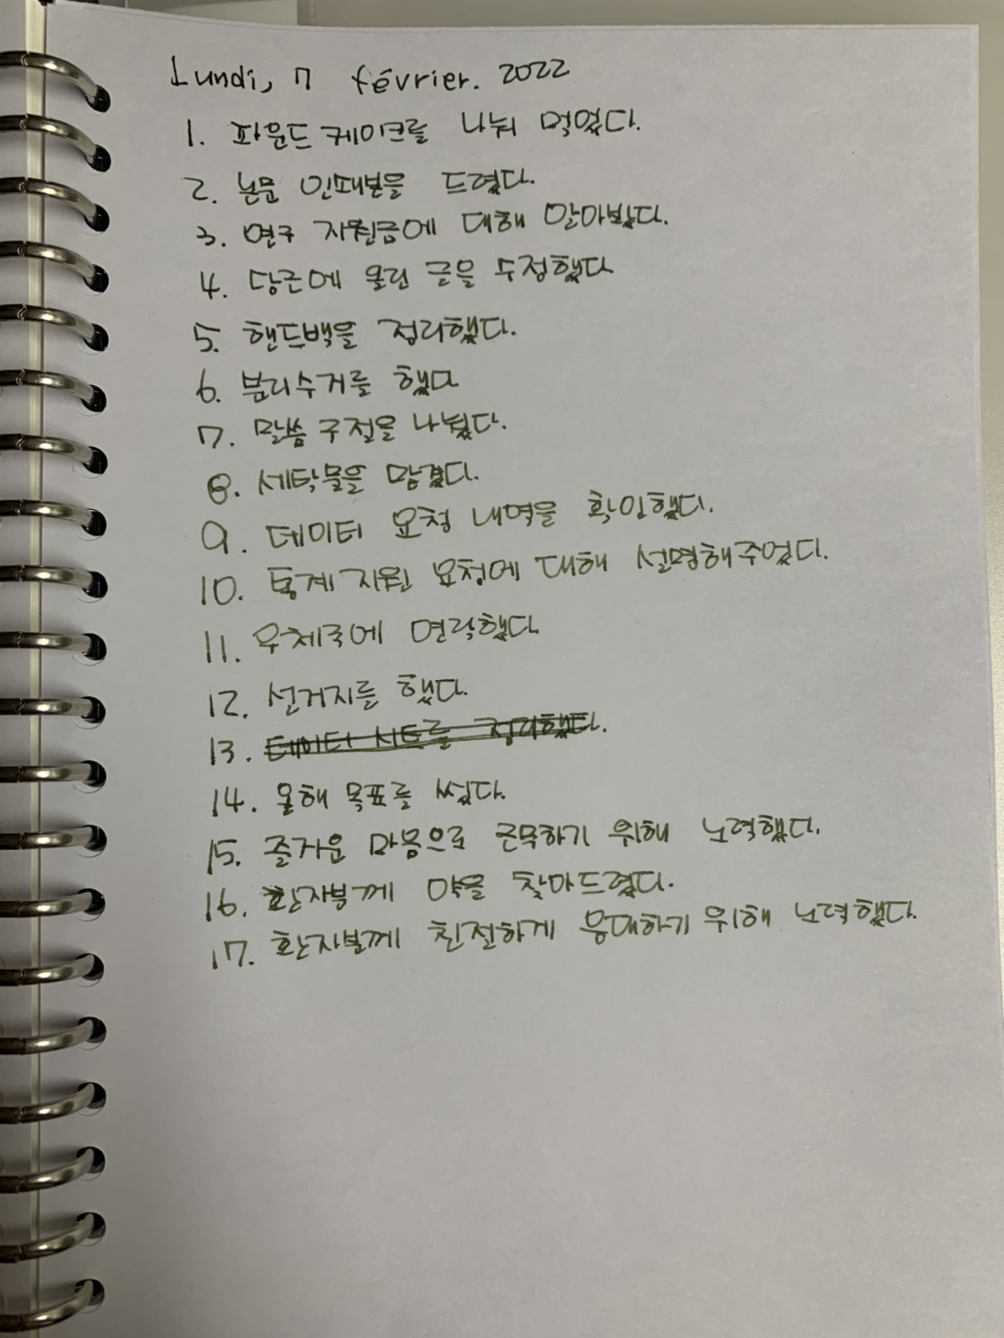 Lundi, 7 février. 2022
1. 파운드 케이크를 나눠 먹었다.
2. 논문 인쇄본을 드렸다.
3. 연구 지원금에 대해 알아봤다.
4. 당근에 올린 글을 수정했다
5. 핸드백을 정리했다.
6. 분리수거를 했다
7. 말씀 구절을 나눴다.
8. 세탁물을 맡겼다.
9. 데이터 요청 내역을 확인했다.
10. 통계 지원 요청에 대해 설명해주었다.
11. 우체국에 연락했다
12. 설거지를 했다.
13. 데이터 시트를 정리했다.
14. 올해 목표를 썼다.
15. 즐거운 마음으로 근무하기 위해 노력했다.
16. 환자분께 약을 찾아드렸다.
17. 환자분께 친절하게 응대하기 위해 노력했다.